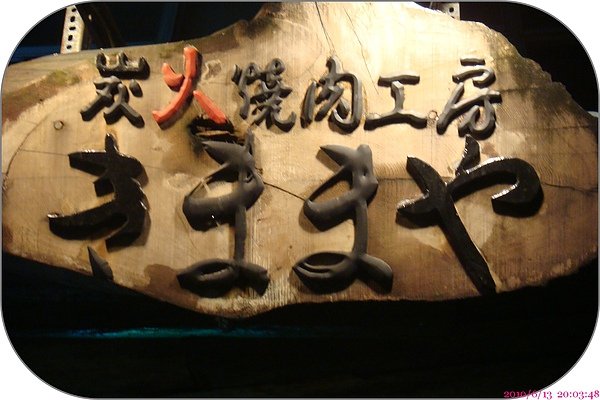 炭火燒肉工房
きままや
2010/6/13 20:03:48